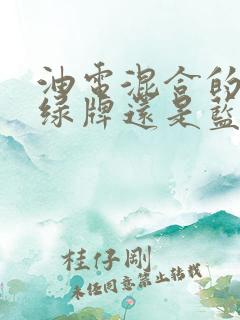 油電混合的
綠牌還是藍
桂仔剛
未經同意禁止轉載